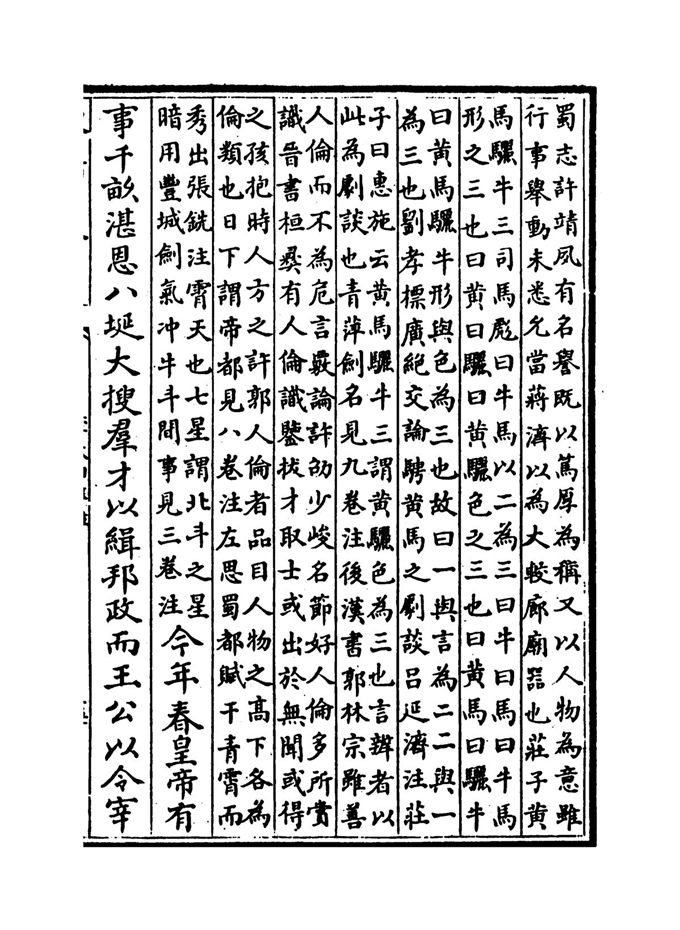 蜀志許靖夙有名譽既以篤厚為稱又以人物為意雖
行事舉動未悉允當蔣濟以為大較廊廟器也莊子黃
馬驪牛三司馬彪曰牛馬以二為三曰牛曰馬曰牛馬
形之三也曰黃曰驪曰黃驪色之三也曰黃馬曰驪牛
曰黃馬驪牛形與色為三也故曰一與言為二二與一
為三也劉孝標廣絶交論騁黃馬之劇談吕延濟注莊
子曰惠施云黃馬驪牛三謂黃驪色為三也言辯者以
此為劇談也青萍劍名見九卷注後漢書郭林宗雖善
人倫而不為危言覈論許劭少峻名節好人倫多所賞
識晉書桓彞有人倫識鑒拔才取士或出於無聞或得
之孩抱時人方之許郭人倫者品目人物之髙下各為
倫類也日下謂帝都見八卷注左思蜀都賦干青霄而
秀出張銑注霄天也七星謂北斗之星
暗用豐城劍氣冲牛斗間事見三卷注
今年春皇帝有
事千畝湛恩八埏大搜羣才以緝邦政而王公以令宰